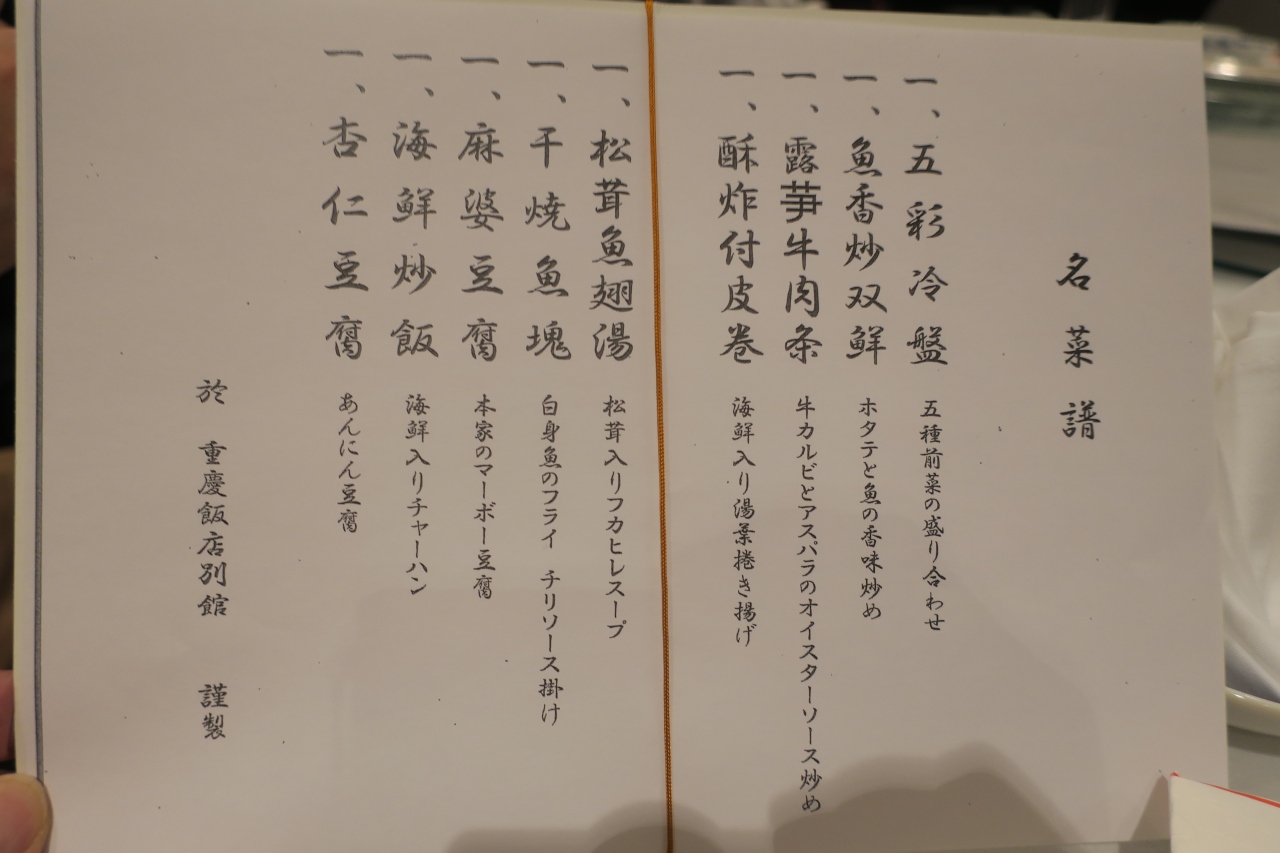 名菜譜
一、五彩冷盤 五種前菜の盛り合わせ
一、魚香炒双鮮 ホタテと魚の香味炒め
一、露芛牛肉条 牛カルビとアスパラのオイスターソース炒め
一、酥炸付皮巻 海鮮入り湯葉捲き揚げ
一、松茸魚翅湯 松茸入りフカヒレスープ
一、干焼魚塊 白身魚のフライ チリソース掛け
一、麻婆豆腐 本家のマーボー豆腐
一、海鮮炒飯 海鮮入りチャーハン
一、杏仁豆腐 あんにん豆腐
於 重慶飯店別館 謹製